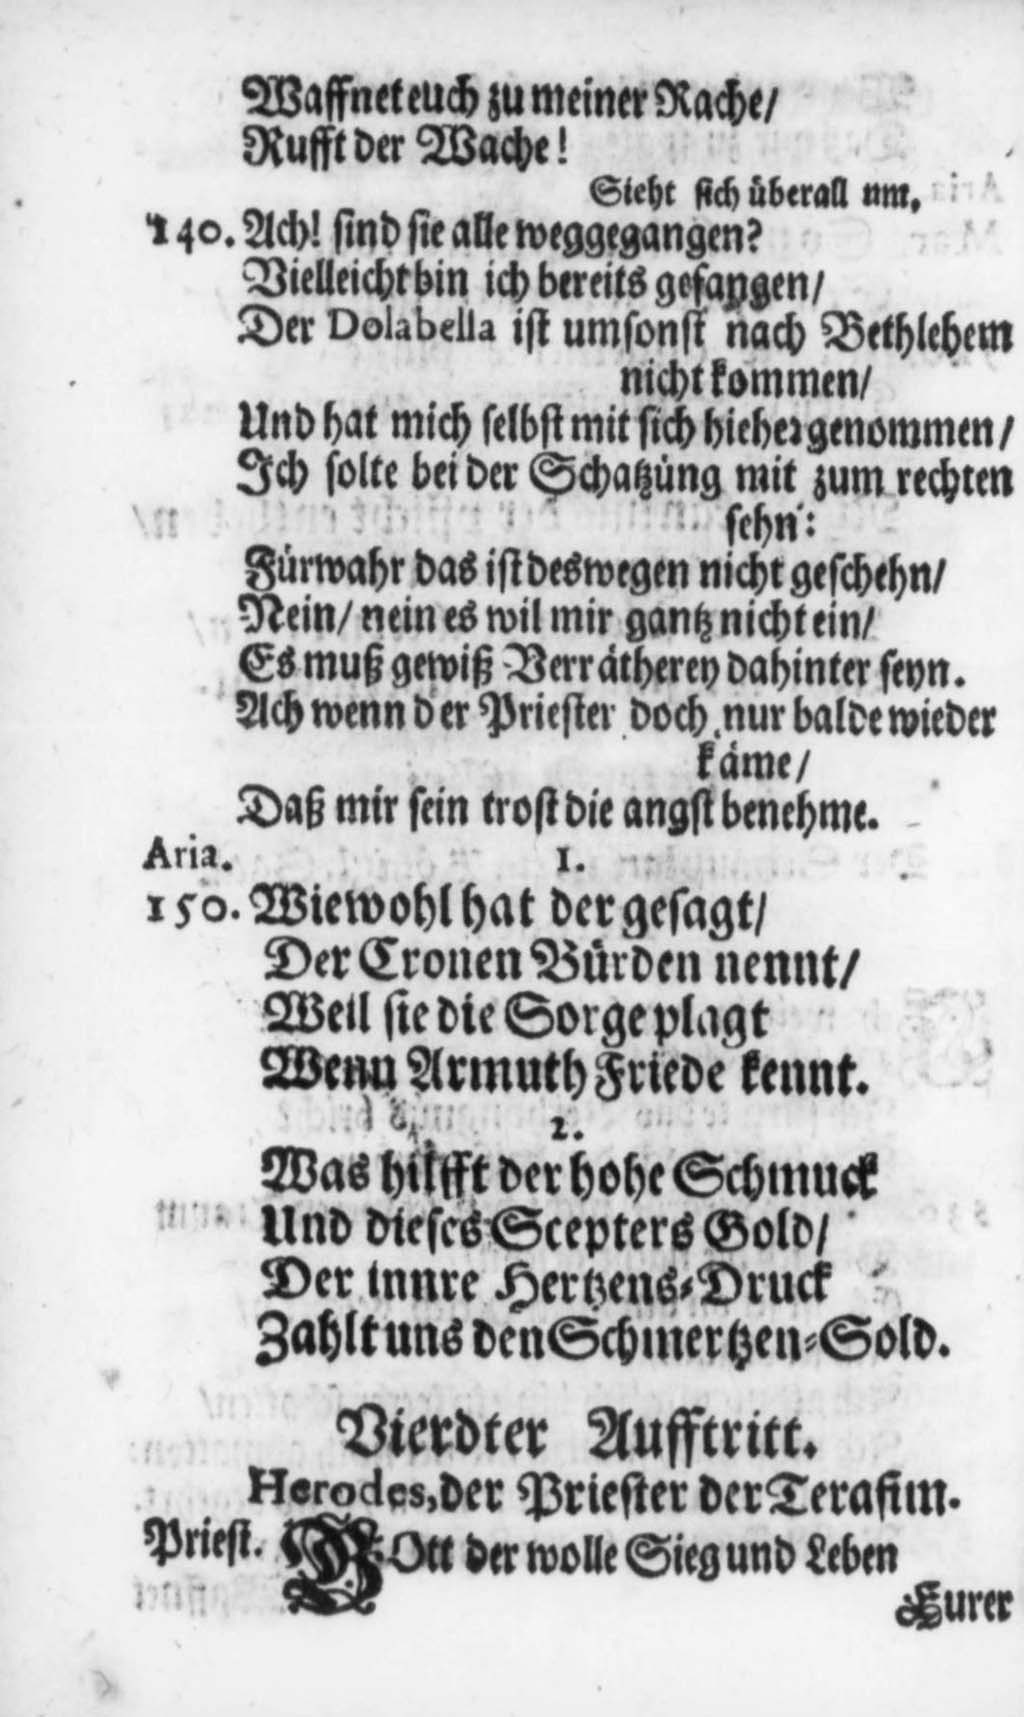 Waffnet euch zu meiner Rache/
Rufft der Wache!
Sieht sich überall um.
140. Ach! sind sie alle weggegangen?
Vielleicht bin ich bereits gefangen/
Der Dolabella ist umsonst nach Bethlehem
nicht kommen/
Und hat mich selbst mit sich hieher genommen/
Ich solte bei der Schatzung mit zum rechten
sehn:
Fürwahr das ist deswegen nicht geschehn/
Nein/ nein es wil mir gantz nicht ein/
Es muß gewiß Verrätherey dahinter seyn.
Ach wenn der Priester doch nur balde wieder
käme/
Daß mir sein trost die angst benehme.
Aria. 1.
150. Wie wohl hat der gesagt/
Der Cronen Bürden nennt/
Weil sie die Sorge plagt
Wenn Armuth Friede kennt.
2.
Was hilfft der hohe Schmuck
Und dieses Scepters Gold/
Der innre Hertzens-Druck
Zahlt uns den Schmertzen-Sold.
Vierdter Aufftritt.
Herodes, der Priester der Terafim.
Priest. GOtt der wolle Sieg und Leben
Eurer